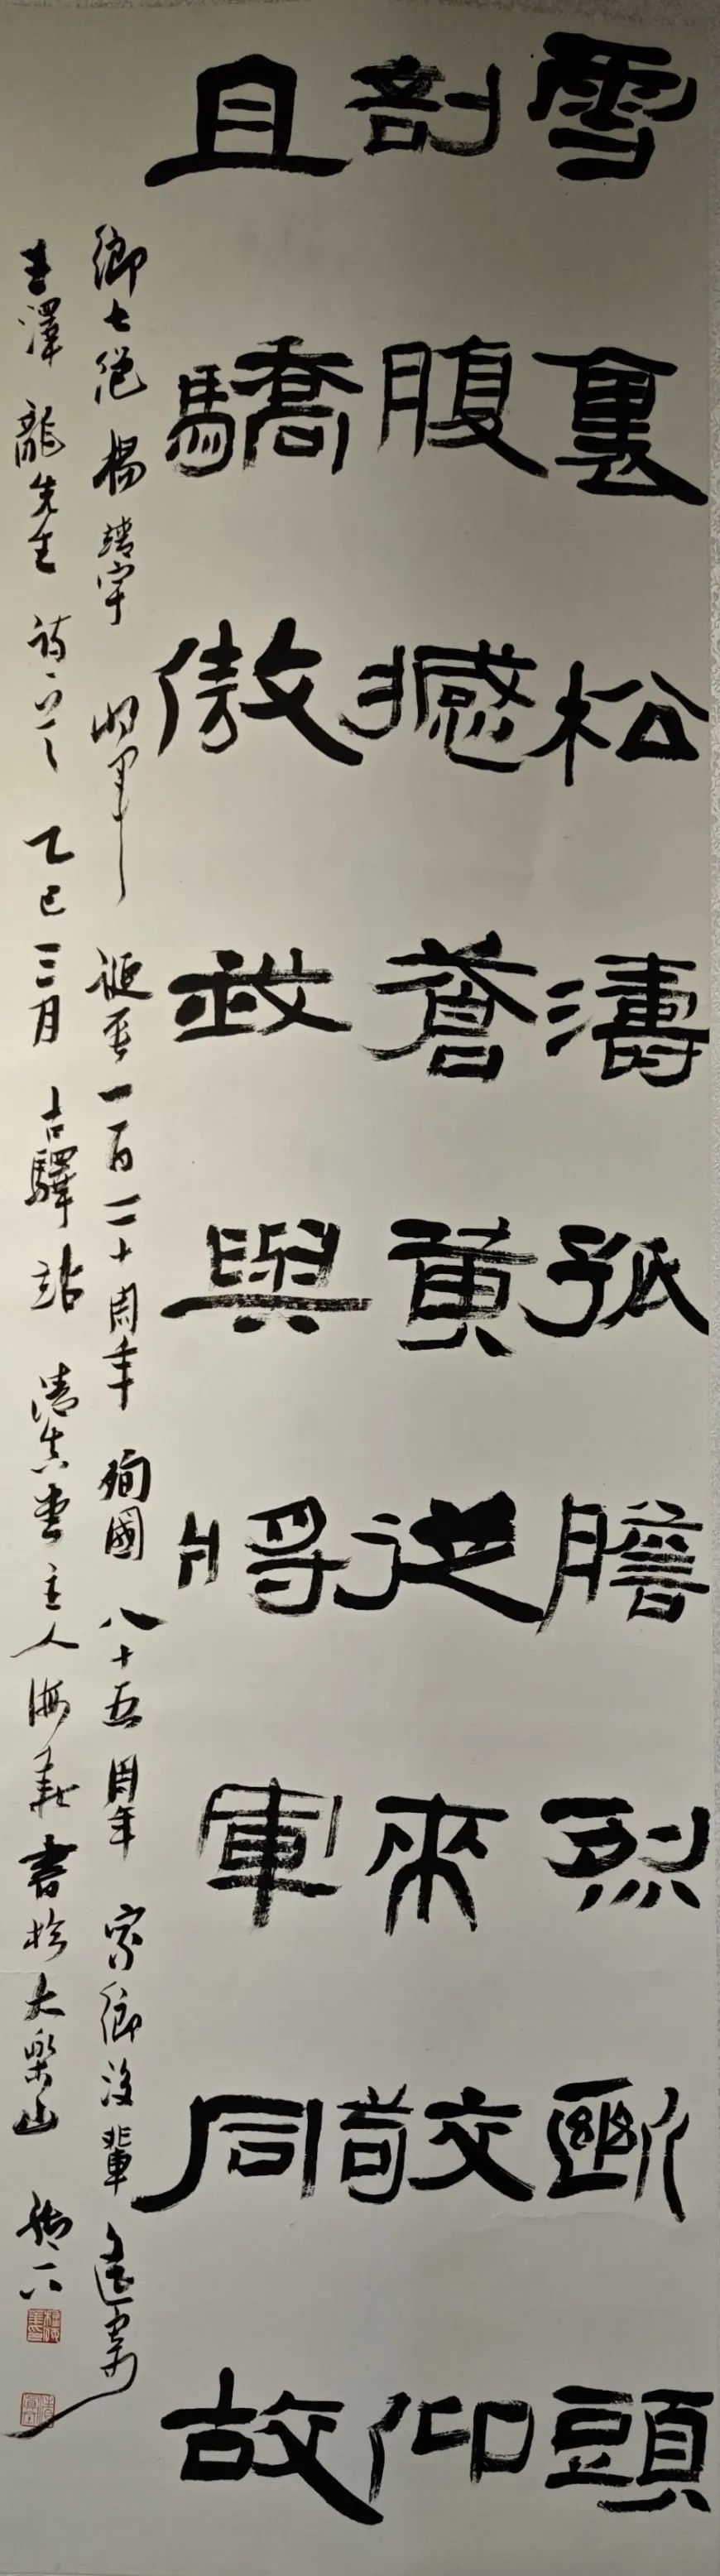 雪裏松濤孤膽烈斷頭
剖腹撼蒼黃從來敬仰
且驕傲敢與將軍同故
鄉七绝楊靖宇將軍誕辰一百二十周年殉國八十五周年家鄉後輩遙寄
王澤龍先生詩一首乙巳三月古驛站清真堂主人海義書於大樂山